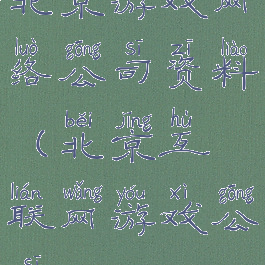 北京游戏网
luò gōng sī zī liào
络公司资料
běi jīng hù
(北京互
lián wǎng yóu xì gōng
联网游戏公
sī